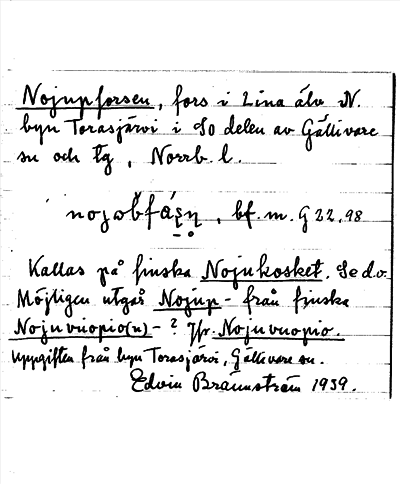 Nojupforsen, fors i Lina älv N.
byn Torasjärvi i SO delen av Gällivare
sn och tg, Norrb. l.
bf. m. G 22,98
Kallas på finska Nojukosket. Se d.o.
Möjligen utgår Nojup- från finska
Nojuvuopio(n)-? Jfr. Nojuvuopio.
Uppgiften från byn Torasjärvi, Gällivare sn.
Edvin Brännström 1939.